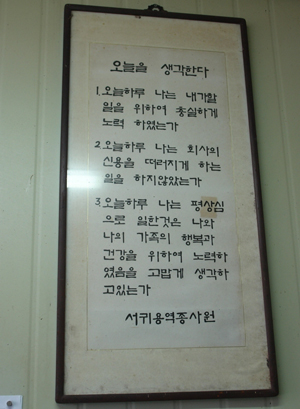 오늘을 생각한다
1. 오늘하루 나는 내가할
일을 위하여 충실하게
노력 하였는가
2. 오늘하루 나는 회사의
신용을 떠러지게 하는
일을 하지않았는가
3. 오늘하루 나는 평상심
으로 일한것은 나와
나의 가족의 행복과
건강을 위하여 노력하
였음을 고맙게 생각하
고있는가
서귀용역종사원